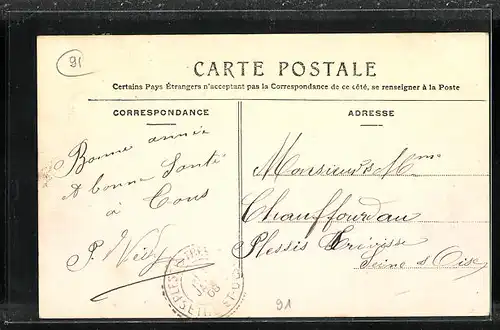 91
CARTE POSTALE
Certains Pays Étrangers n'acceptant pas la Correspondance de ce côté, se renseigner à la Poste
CORRESPONDANCE
ADRESSE
Bonne année
et bonne Santé
à Tous
Monsieur & Mme
Chauffourdau
Plessis
Seine & Oise
91